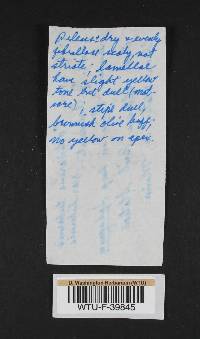 Pileus: dry & evenly
fibrillose scaly, not
striate; lamellae
have slight yellow
tone but dull (not
sore); stipe dull,
brownish olive buff;
no yellow on apex.
U. Washington Herbarium (WTU)
WTU-F-39845